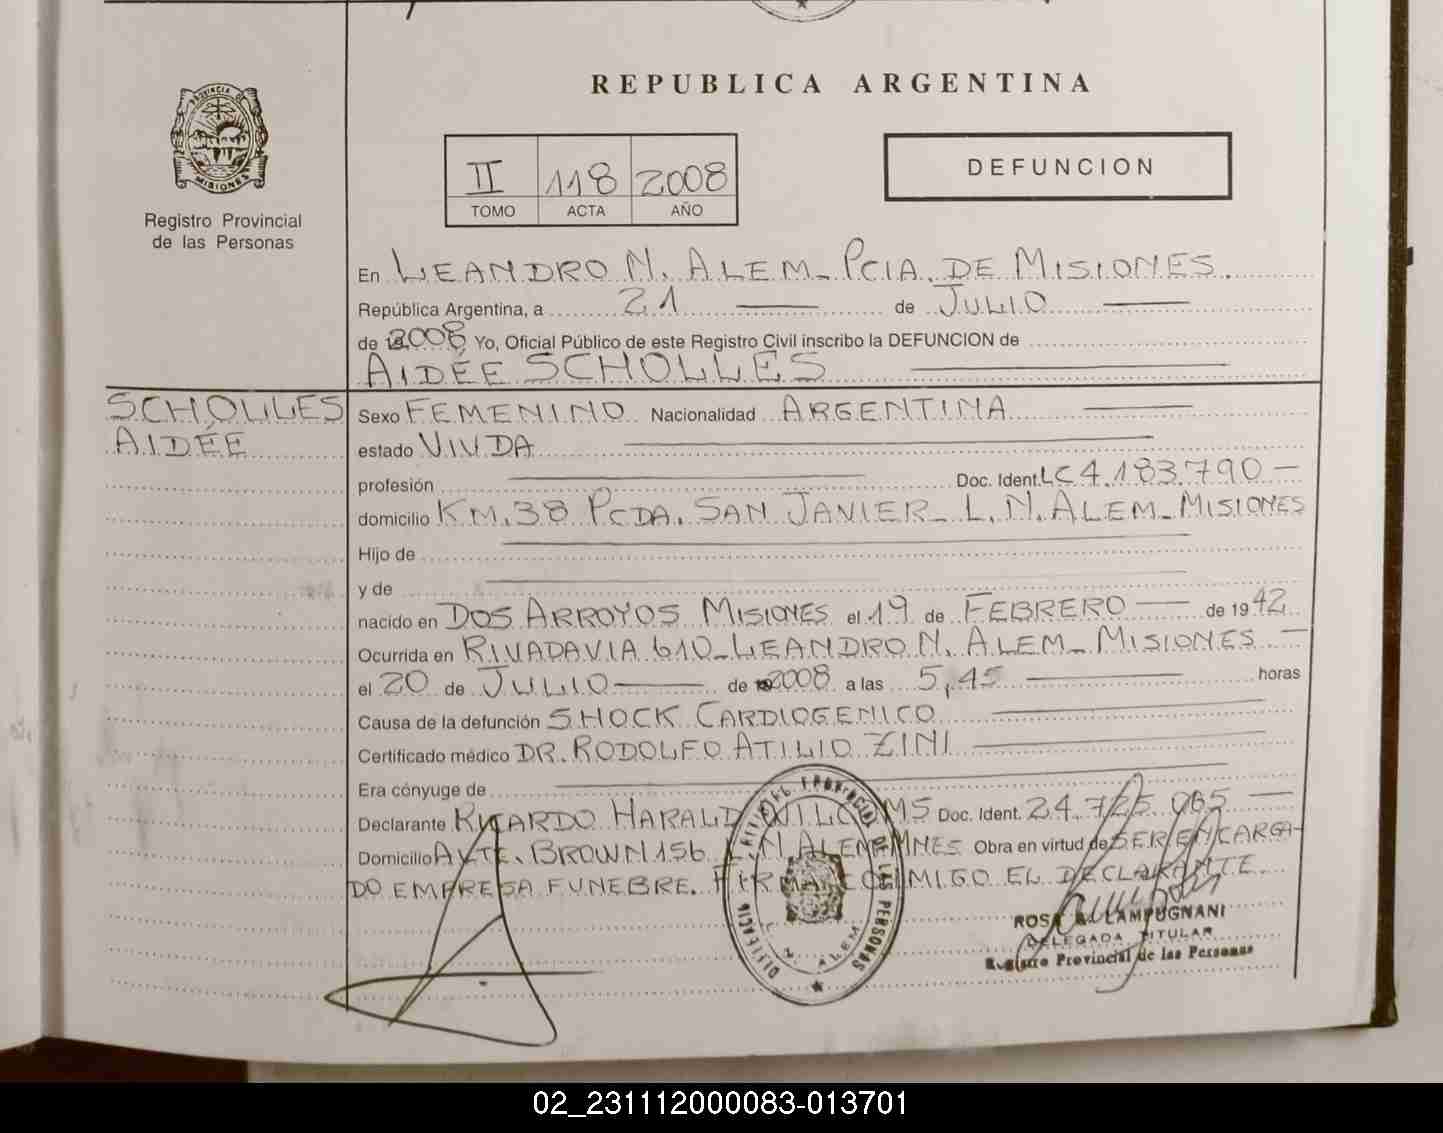 REPUBLICA ARGENTINA
PROVINCIA DE
MISIONES
Registro Provincial
de las Personas
II 118 2008
TOMO ACTA AÑO
DEFUNCION
En LEANDRO N. ALEM - PCIA. DE MISIONES
República Argentina, a 21 de JULIO
de 2008 Yo, Oficial Público de este Registro Civil inscribo la DEFUNCION de
AIDÉE SCHOLLES
SCHOLLES
AIDÉE
Sexo FEMENINO Nacionalidad ARGENTINA
estado VIUDA
profesión Doc. Ident. LC 4.183.790 -
domicilio KM. 38 PCDA. SAN JAVIER - L. N. ALEM - MISIONES
Hijo de
y de
nacido en DOS ARROYOS MISIONES el 19 de FEBRERO de 1942
Ocurrida en RIVADAVIA 610 - LEANDRO N. ALEM - MISIONES -
el 20 de JULIO de 2008 a las 5,45 horas
Causa de la defunción SHOCK CARDIOGENICO
Certificado médico DR. RODOLFO ATILIO ZINI
Era cónyuge de
Declarante RICARDO HARALD Doc. Ident. 24.725.065 -
Domicilio AVTE. BROWN 156 L. N. ALEM - MNES Obra en virtud de SER ENCARGA-
DO EMPRESA FUNEBRE. FIRMA CONMIGO EL DECLARANTE.
PROVINCIAL DE LAS PERSONAS
L. N. ALEM
ROSA LAMPUGNANI
DELEGADA TITULAR
Registro Provincial de las Personas
02_231112000083-013701